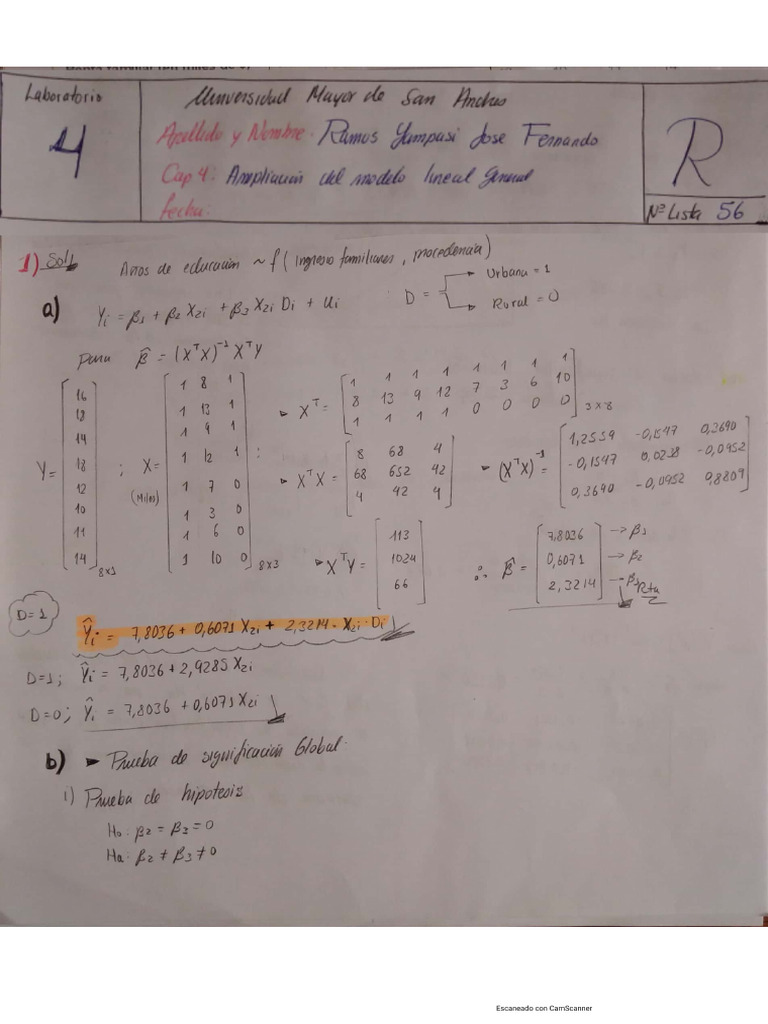 Laboratorio
4
Universidad Mayor de San Andres
Apellido y Nombre: Ramos Yampasi Jose Fernando
Cap 4: Ampliacion del modelo lineal General
fecha:
R
Nº Lista 56
1) Sol\
Años de educación ~ f (ingreso familiares, procedencia)
D = Urbana = 1
Rural = 0
a) Yi = β1 + β2 X2i + β3 X2i Di + Ui
para β̂ = (XᵀX)⁻¹ XᵀY
Y = [16 18 14 18 12 10 11 14] 8x1 ;
X = (Miles)
1 8 1
1 13 1
1 9 1
1 12 1
1 7 0
1 3 0
1 6 0
1 10 0
8x3
Xᵀ =
1 1 1 1 1 1 1 1
8 13 9 12 7 3 6 10
1 1 1 1 0 0 0 0
3x8
XᵀX =
8 68 4
68 652 42
4 42 4
(XᵀX)⁻¹ =
1,2559 -0,1547 0,3690
-0,1547 0,0238 -0,0952
0,3690 -0,0952 0,8809
XᵀY =
113
1024
66
∴ β̂ =
7,8036 → β1
0,6071 → β2
2,3214 → β3
Rta
D=1
Ŷi = 7,8036 + 0,6071 X2i + 2,3214 - X2i · Di
D=1; Ŷi = 7,8036 + 2,9285 X2i
D=0; Ŷi = 7,8036 + 0,6071 X2i
b) ► Prueba de significación Global:
i) Prueba de hipotesis
Ho: β2 = β2 = 0
Ha: β2 ≠ β3 ≠ 0
Escaneado con CamScanner